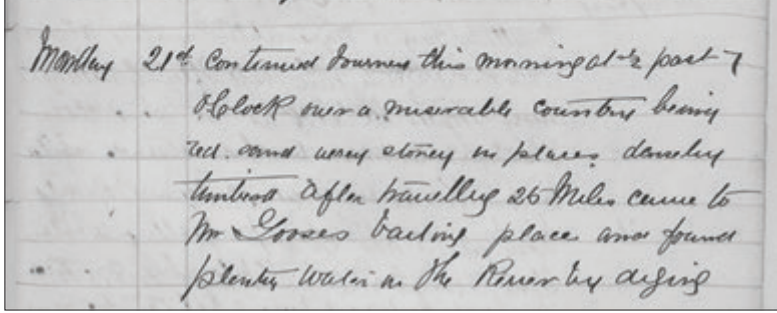 Monday 21st Continued Journey this morning at ½ past 7
OClock over a miserable country being
red sand verey stoney in places densley
timbered After travelling 25 Miles came to
Mr Gosses place and found
plenty Water in the River by diging